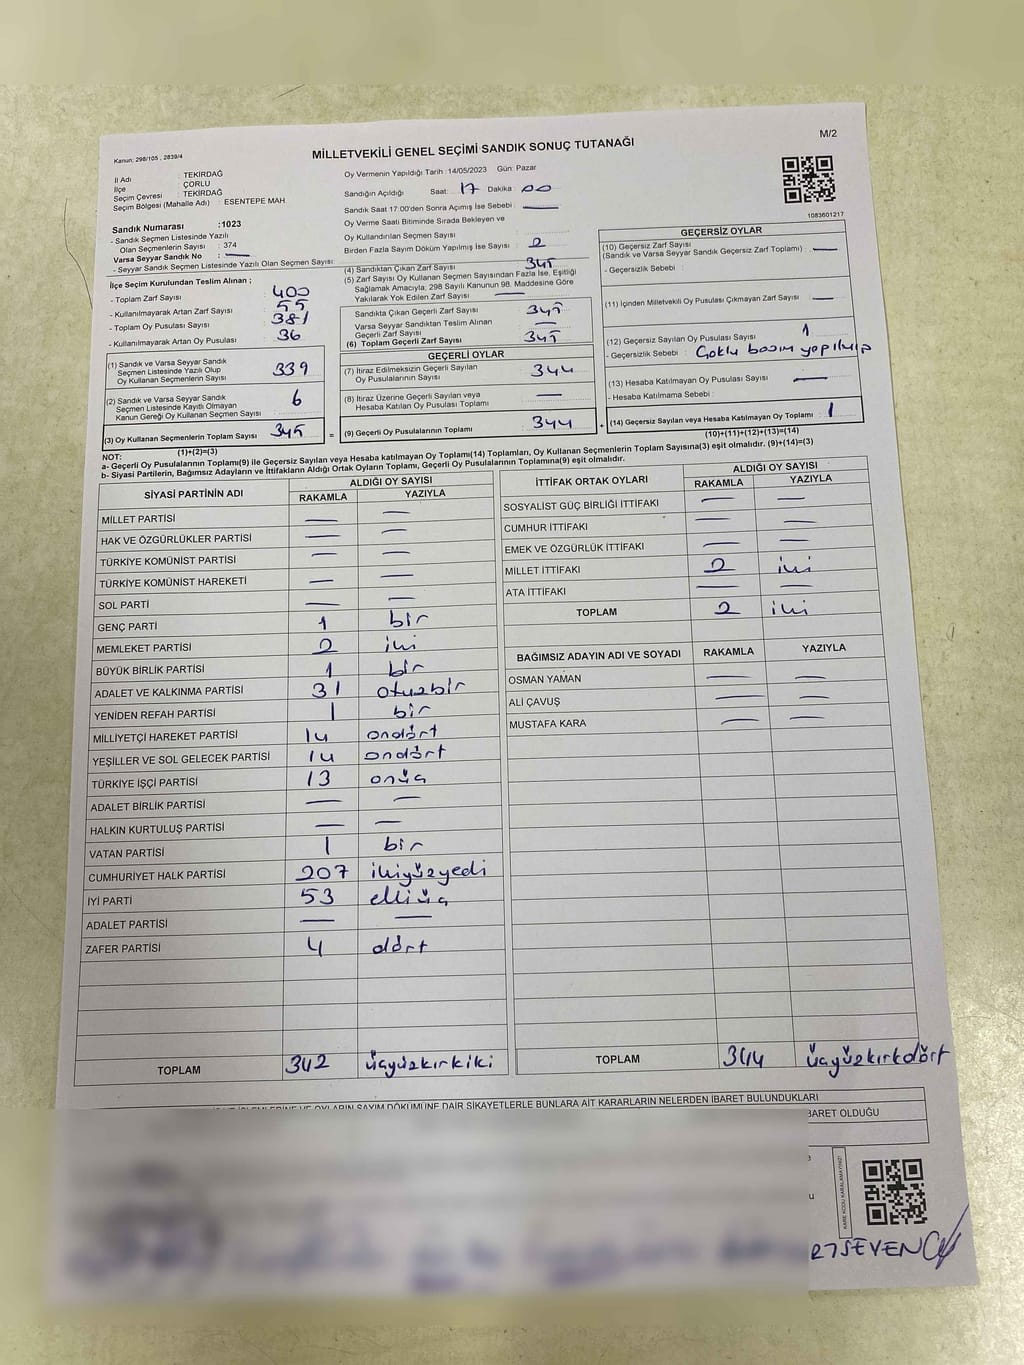 Kanun: 298/105 , 2839/4
MİLLETVEKİLİ GENEL SEÇİMİ SANDIK SONUÇ TUTANAĞI
M/2
İl Adı : TEKİRDAĞ
İlçe : ÇORLU
Seçim Çevresi : TEKİRDAĞ
Seçim Bölgesi (Mahalle Adı) : ESENTEPE MAH
Sandık Numarası :1023
- Sandık Seçmen Listesinde Yazılı
Olan Seçmenlerin Sayısı : 374
Varsa Seyyar Sandık No : —
- Seyyar Sandık Seçmen Listesinde Yazılı Olan Seçmen Sayısı:
Oy Vermenin Yapıldığı Tarih :14/05/2023 Gün: Pazar
Sandığın Açıldığı Saat: 17 Dakika : 00
Sandık Saat 17.00'den Sonra Açımış İse Sebebi : —
Oy Verme Saati Bitiminde Sırada Bekleyen ve
Oy Kullandırılan Seçmen Sayısı :
Birden Fazla Sayım Döküm Yapılmış İse Sayısı : 2
1083601217
İlçe Seçim Kurulundan Teslim Alınan ;
- Toplam Zarf Sayısı : 400
- Kullanılmayarak Artan Zarf Sayısı : 55
- Toplam Oy Pusulası Sayısı : 381
- Kullanılmayarak Artan Oy Pusulası : 36
(1) Sandık ve Varsa Seyyar Sandık
Seçmen Listesinde Yazılı Olup
Oy Kullanan Seçmenlerin Sayısı : 339
(2) Sandık ve Varsa Seyyar Sandık
Seçmen Listesinde Kayıtlı Olmayan
Kanun Gereği Oy Kullanan Seçmen Sayısı : 6
(3) Oy Kullanan Seçmenlerin Toplam Sayısı : 345
(1)+(2)=(3)
(4) Sandıktan Çıkan Zarf Sayısı : 345
(5) Zarf Sayısı Oy Kullanan Seçmen Sayısından Fazla İse, Eşitliği
Sağlamak Amacıyla; 298 Sayılı Kanunun 98. Maddesine Göre
Yakılarak Yok Edilen Zarf Sayısı : —
Sandıkta Çıkan Geçerli Zarf Sayısı : 345
Varsa Seyyar Sandıktan Teslim Alınan
Geçerli Zarf Sayısı : —
(6) Toplam Geçerli Zarf Sayısı : 345
GEÇERLİ OYLAR
(7) İtiraz Edilmeksizin Geçerli Sayılan
Oy Pusulalarının Sayısı : 344
(8) İtiraz Üzerine Geçerli Sayılan veya
Hesaba Katılan Oy Pusulası Toplamı : —
= (9) Geçerli Oy Pusulalarının Toplamı : 344
GEÇERSİZ OYLAR
(10) Geçersiz Zarf Sayısı
(Sandık ve Varsa Seyyar Sandık Geçersiz Zarf Toplamı) : —
- Geçersizlik Sebebi :
(11) İçinden Milletvekili Oy Pusulası Çıkmayan Zarf Sayısı : —
(12) Geçersiz Sayılan Oy Pusulası Sayısı : 1
- Geçersizlik Sebebi : Çoklu basım yapılmış
(13) Hesaba Katılmayan Oy Pusulası Sayısı : —
- Hesaba Katılmama Sebebi :
+ (14) Geçersiz Sayılan veya Hesaba Katılmayan Oy Toplamı : 1
(10)+(11)+(12)+(13)=(14)
NOT:
a- Geçerli Oy Pusulalarının Toplamı(9) ile Geçersiz Sayılan veya Hesaba Katılmayan Oy Toplamı(14) Toplamları, Oy Kullanan Seçmenlerin Toplam Sayısına(3) eşit olmalıdır. (9)+(14)=(3)
b- Siyasi Partilerin, Bağımsız Adayların ve İttifakların Aldığı Ortak Oyların Toplamı, Geçerli Oy Pusulalarının Toplamına(9) eşit olmalıdır.
SİYASİ PARTİNİN ADI ALDIĞI OY SAYISI
RAKAMLA YAZIYLA
MİLLET PARTİSİ — —
HAK VE ÖZGÜRLÜKLER PARTİSİ — —
TÜRKİYE KOMÜNİST PARTİSİ — —
TÜRKİYE KOMÜNİST HAREKETİ — —
SOL PARTİ — —
GENÇ PARTİ 1 bir
MEMLEKET PARTİSİ 2 iki
BÜYÜK BİRLİK PARTİSİ 1 bir
ADALET VE KALKINMA PARTİSİ 31 otuzbir
YENİDEN REFAH PARTİSİ 1 bir
MİLLİYETÇİ HAREKET PARTİSİ 14 ondört
YEŞİLLER VE SOL GELECEK PARTİSİ 14 ondört
TÜRKİYE İŞÇİ PARTİSİ 13 onüç
ADALET BİRLİK PARTİSİ — —
HALKIN KURTULUŞ PARTİSİ — —
VATAN PARTİSİ 1 bir
CUMHURİYET HALK PARTİSİ 207 ikiyüzyedi
İYİ PARTİ 53 elliüç
ADALET PARTİSİ — —
ZAFER PARTİSİ 4 dört
TOPLAM 342 üçyüzkırkiki
İTTİFAK ORTAK OYLARI ALDIĞI OY SAYISI
RAKAMLA YAZIYLA
SOSYALİST GÜÇ BİRLİĞİ İTTİFAKI — —
CUMHUR İTTİFAKI — —
EMEK VE ÖZGÜRLÜK İTTİFAKI — —
MİLLET İTTİFAKI 2 iki
ATA İTTİFAKI — —
TOPLAM 2 iki
BAĞIMSIZ ADAYIN ADI VE SOYADI RAKAMLA YAZIYLA
OSMAN YAMAN — —
ALİ ÇAVUŞ — —
MUSTAFA KARA — —
TOPLAM 344 üçyüzkırkdört
İŞLEMLERİNE VE OYLARIN SAYIM DÖKÜMÜNE DAİR ŞİKAYETLERLE BUNLARA AİT KARARLARIN NELERDEN İBARET BULUNDUKLARI
BARET OLDUĞU
KARE KODU KARALAMAYINIZ!
RTSEVEN